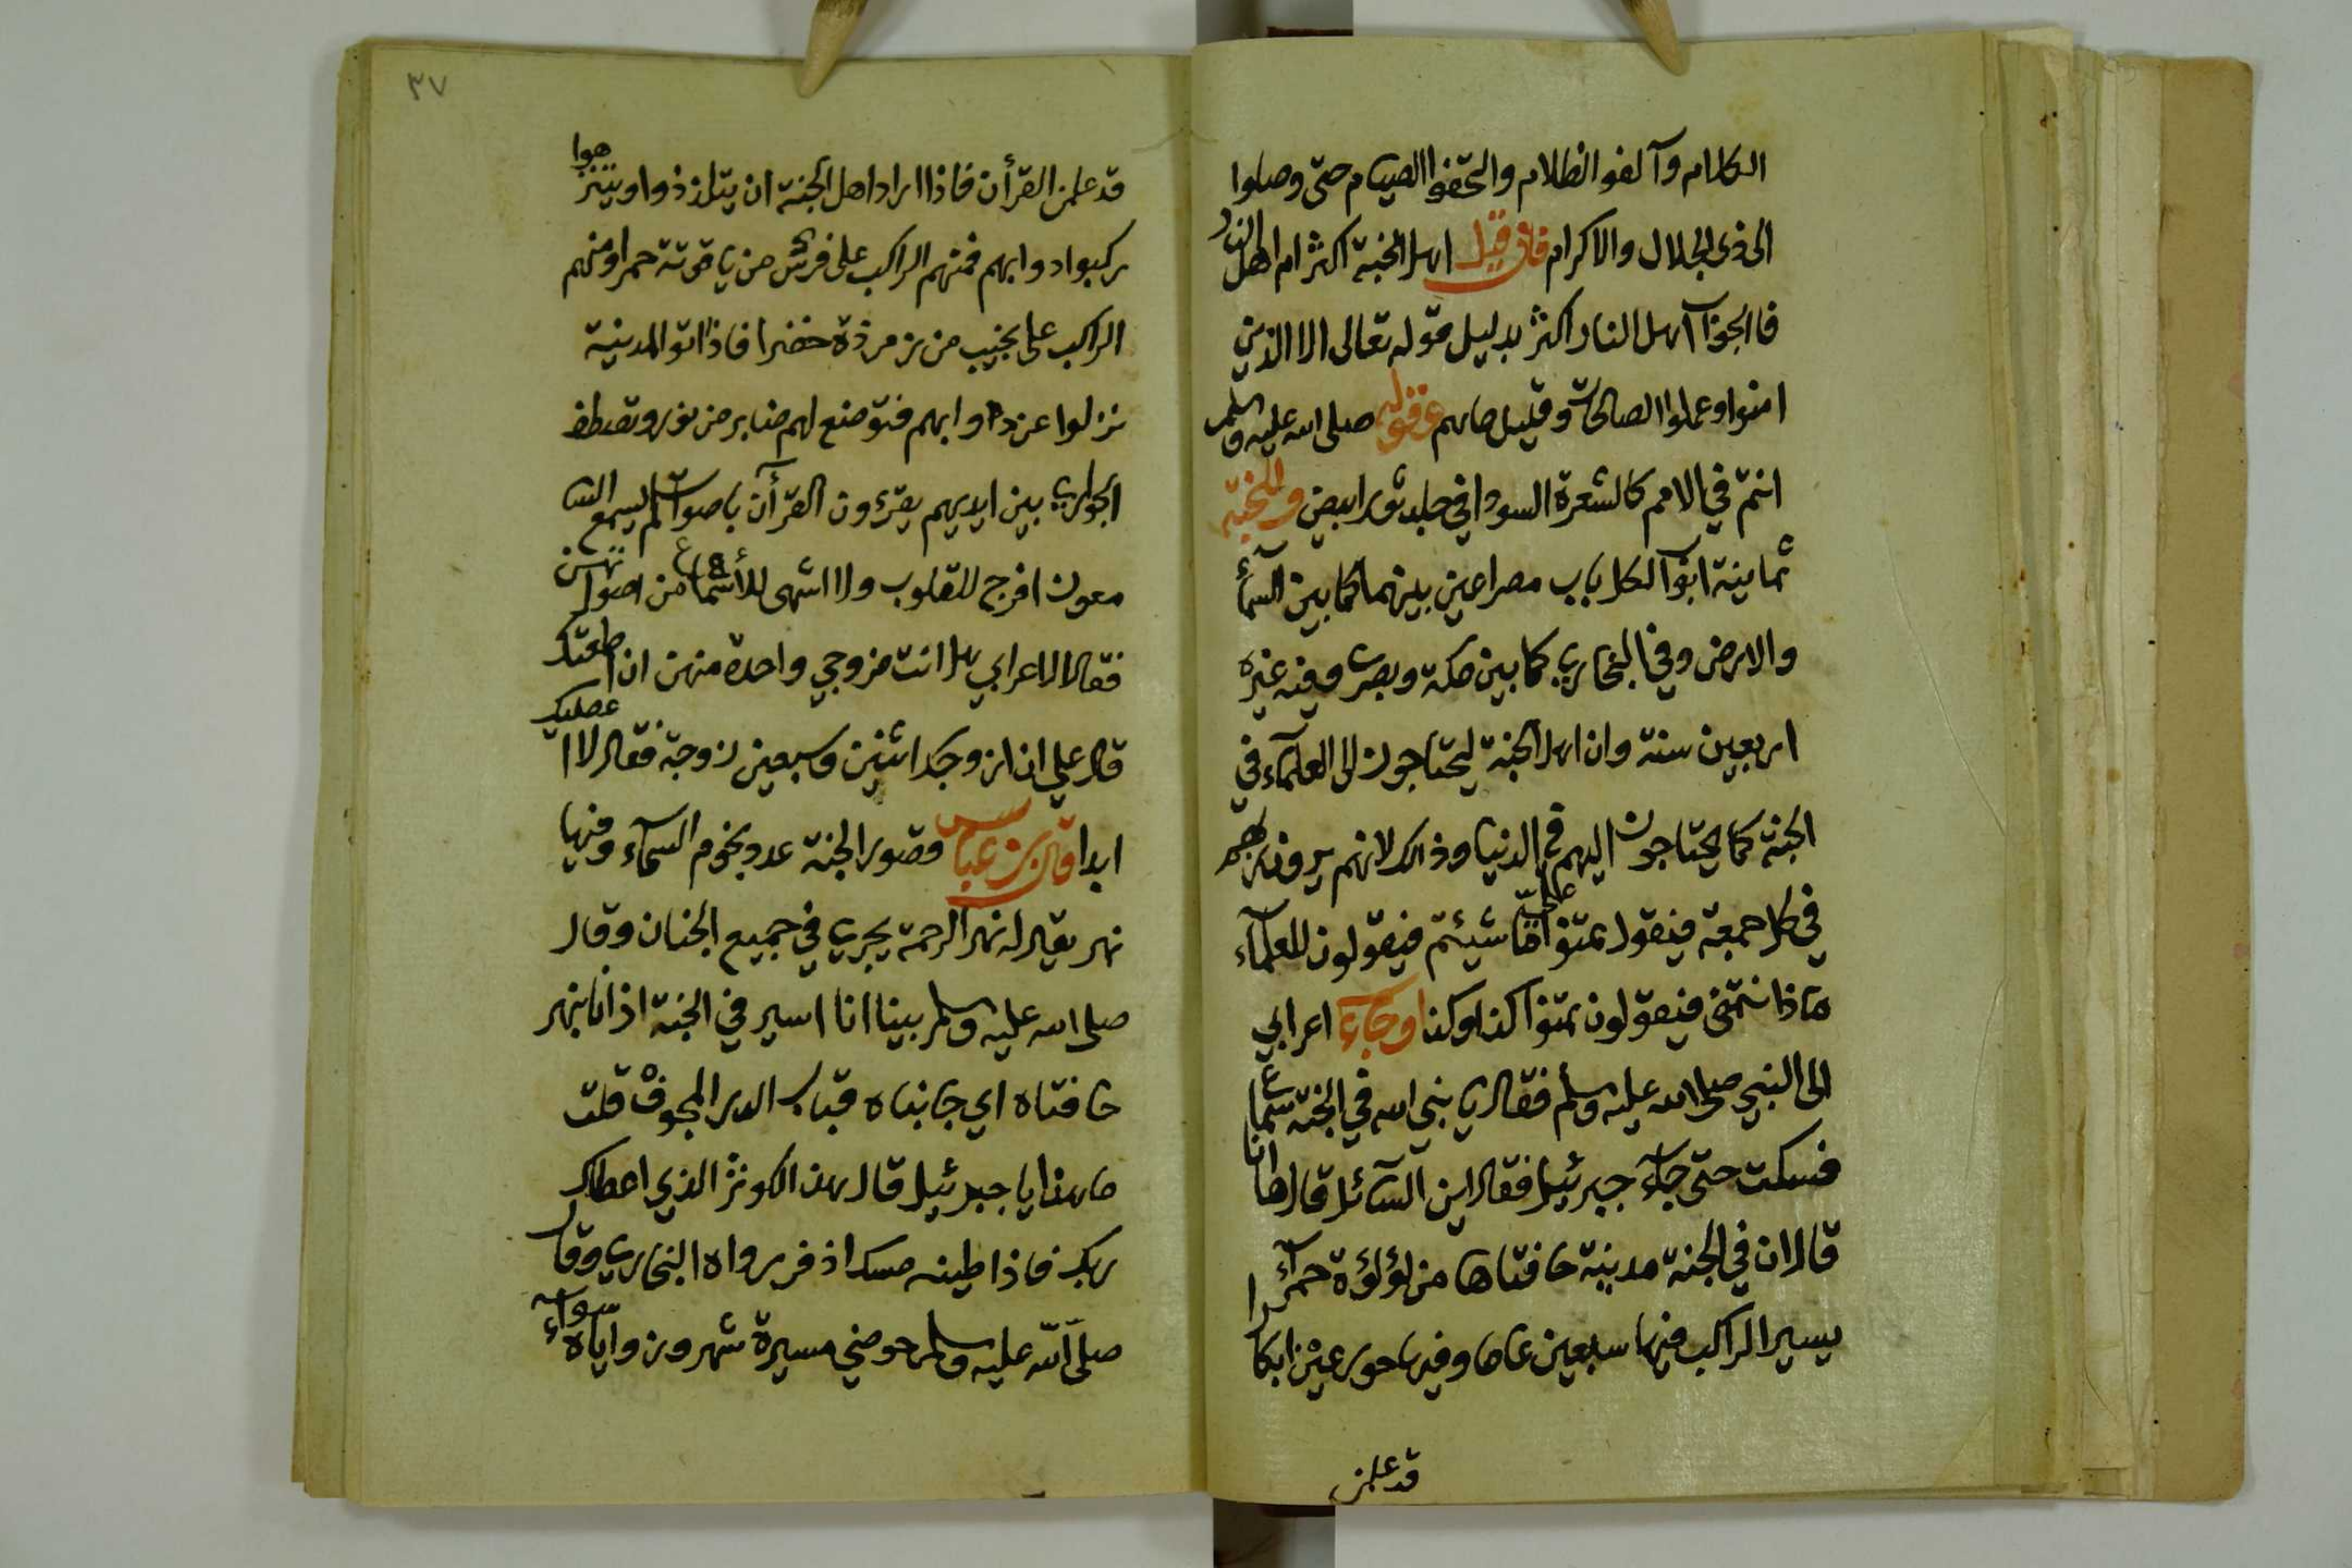 الكلام وآلفو الظلام والتحفوا الصيام حتى وصلوا
الى ذى الجلال والاكرام فان قيل اهل الجنة اكثر ام اهل النار
فالجوآ اهل النار اكثر بدليل قوله تعالى الا الذين
امنوا وعملوا الصالحات وقليل ماهم وقوله صلى الله عليه وسلم
انتم في الامم كالشعرة السودا في جلد ثور ابيض وللجنة
ثمانية ابوآ لكل باب مصراعين بينهما كما بين السمآء
والارض وفي البخاري كما بين مكة وبصرى وفيه غيره
اربعين سنة وان اهل الجنة ليحتاجون الى العلمآء في
الجنة كما يحتاجون اليهم في الدنيا وذالك لانهم يرون ربهم
في كل جمعة فيقول تمنوا علي ما شيئتم فيقولون للعلمآء
ماذا نتمنى فيقولون تمنوا كذا وكذا وجآء اعرابي
الى النبي صلى الله عليه وسلم فقال يا نبي الله في الجنة سماع
فسكت حتى جآء جبرئيل فقال اين السآئل قال ها انا
قال ان في الجنة مدينة حافتاها من لؤلؤة حمرآء
يسير الراكب فيها سبعين عاما وفيها حور عين ابكارا
قد علمن
٣٧
قد علمن القرأن فاذا اراد اهل الجنة ان يتلذذوا ويتنزهوا
ركبوا دوابهم فمنهم الراكب على فرس من ياقوتة حمرا ومنهم
الراكب على نجيب من زمرذة خضرا فاذا اتو المدينة
نزلوا عن دوابهم فتوضع لهم منابر من نور وتصطف
الجواري بين ايديهم يقرءون القرآن باصوات لم يسمع السا
معون افرح للقلوب ولا اشهى للأسماع من اصواتهن
فقال الاعرابي هل انت مزوجي واحدة منهن ان اطعتك
قال علي ان ازوجك اثنين وسبعين زوجة فقال لا اعصيك
ابدا قال بن عباس قصور الجنة عدد نجوم السمآء وفيها
نهر يقال له نهر الرحمة يجري في جميع الجنان وقال
صلى الله عليه وسلم بينا انا اسير في الجنة اذ انا بنهر
حافتاه اي جانباه قباب الدر المجوف قلت
ماهذا يا جبرئيل قال هذا الكوثر الذي اعطاك
ربك فاذا طينه مسك اذفر رواه البخاري وقال
صلى الله عليه وسلم حوضي مسيرة شهر وزواياه سوآء